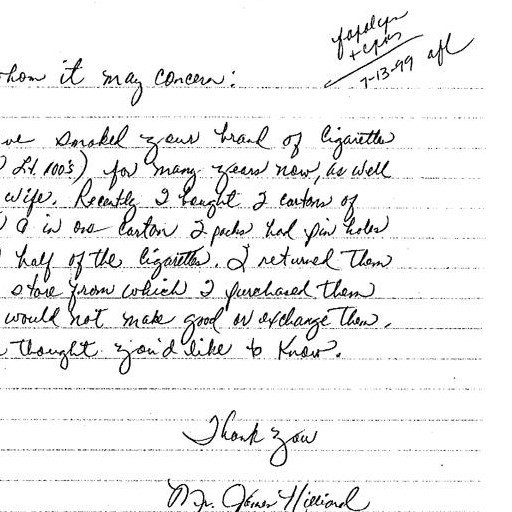 + cpns
7-13-99 afl
whom it may concern:
ve smoked your brand of Cigarettes
Lt. 100's) for many years now, as well
wife. Recently I bought 2 cartons of
in one Carton 2 packs had pin holes
half of the Cigarettes. I returned them
store from which I purchased them
would not make good or exchange them.
thought you'd like to know.
Thank you
Mr. James Hilliard